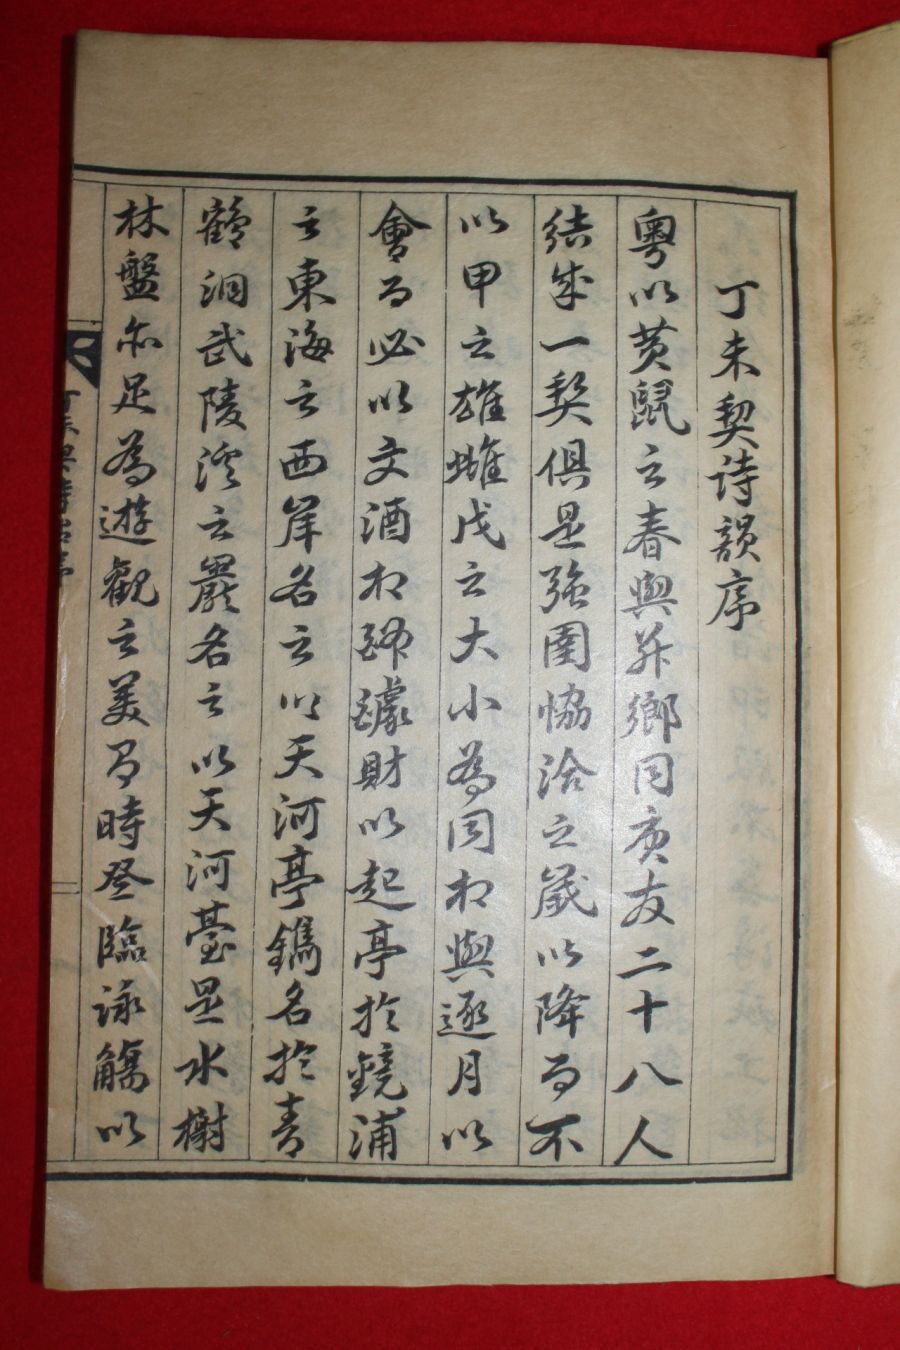 丁未契詩韻序
粤以黄鼠之春與幷鄉同庚友二十八人
結成一契俱是强圉協洽之歲以降而不
以甲之雄雌戊之大小為同相與逐月以
會而必以文酒相歸醵財以起亭於鏡浦
之東海之西岸名之以天河亭鐫名於青
鶴洞武陵溪之巖名之以天河臺是水榭
林盤亦足為遊觀之美有時登臨詠觴以